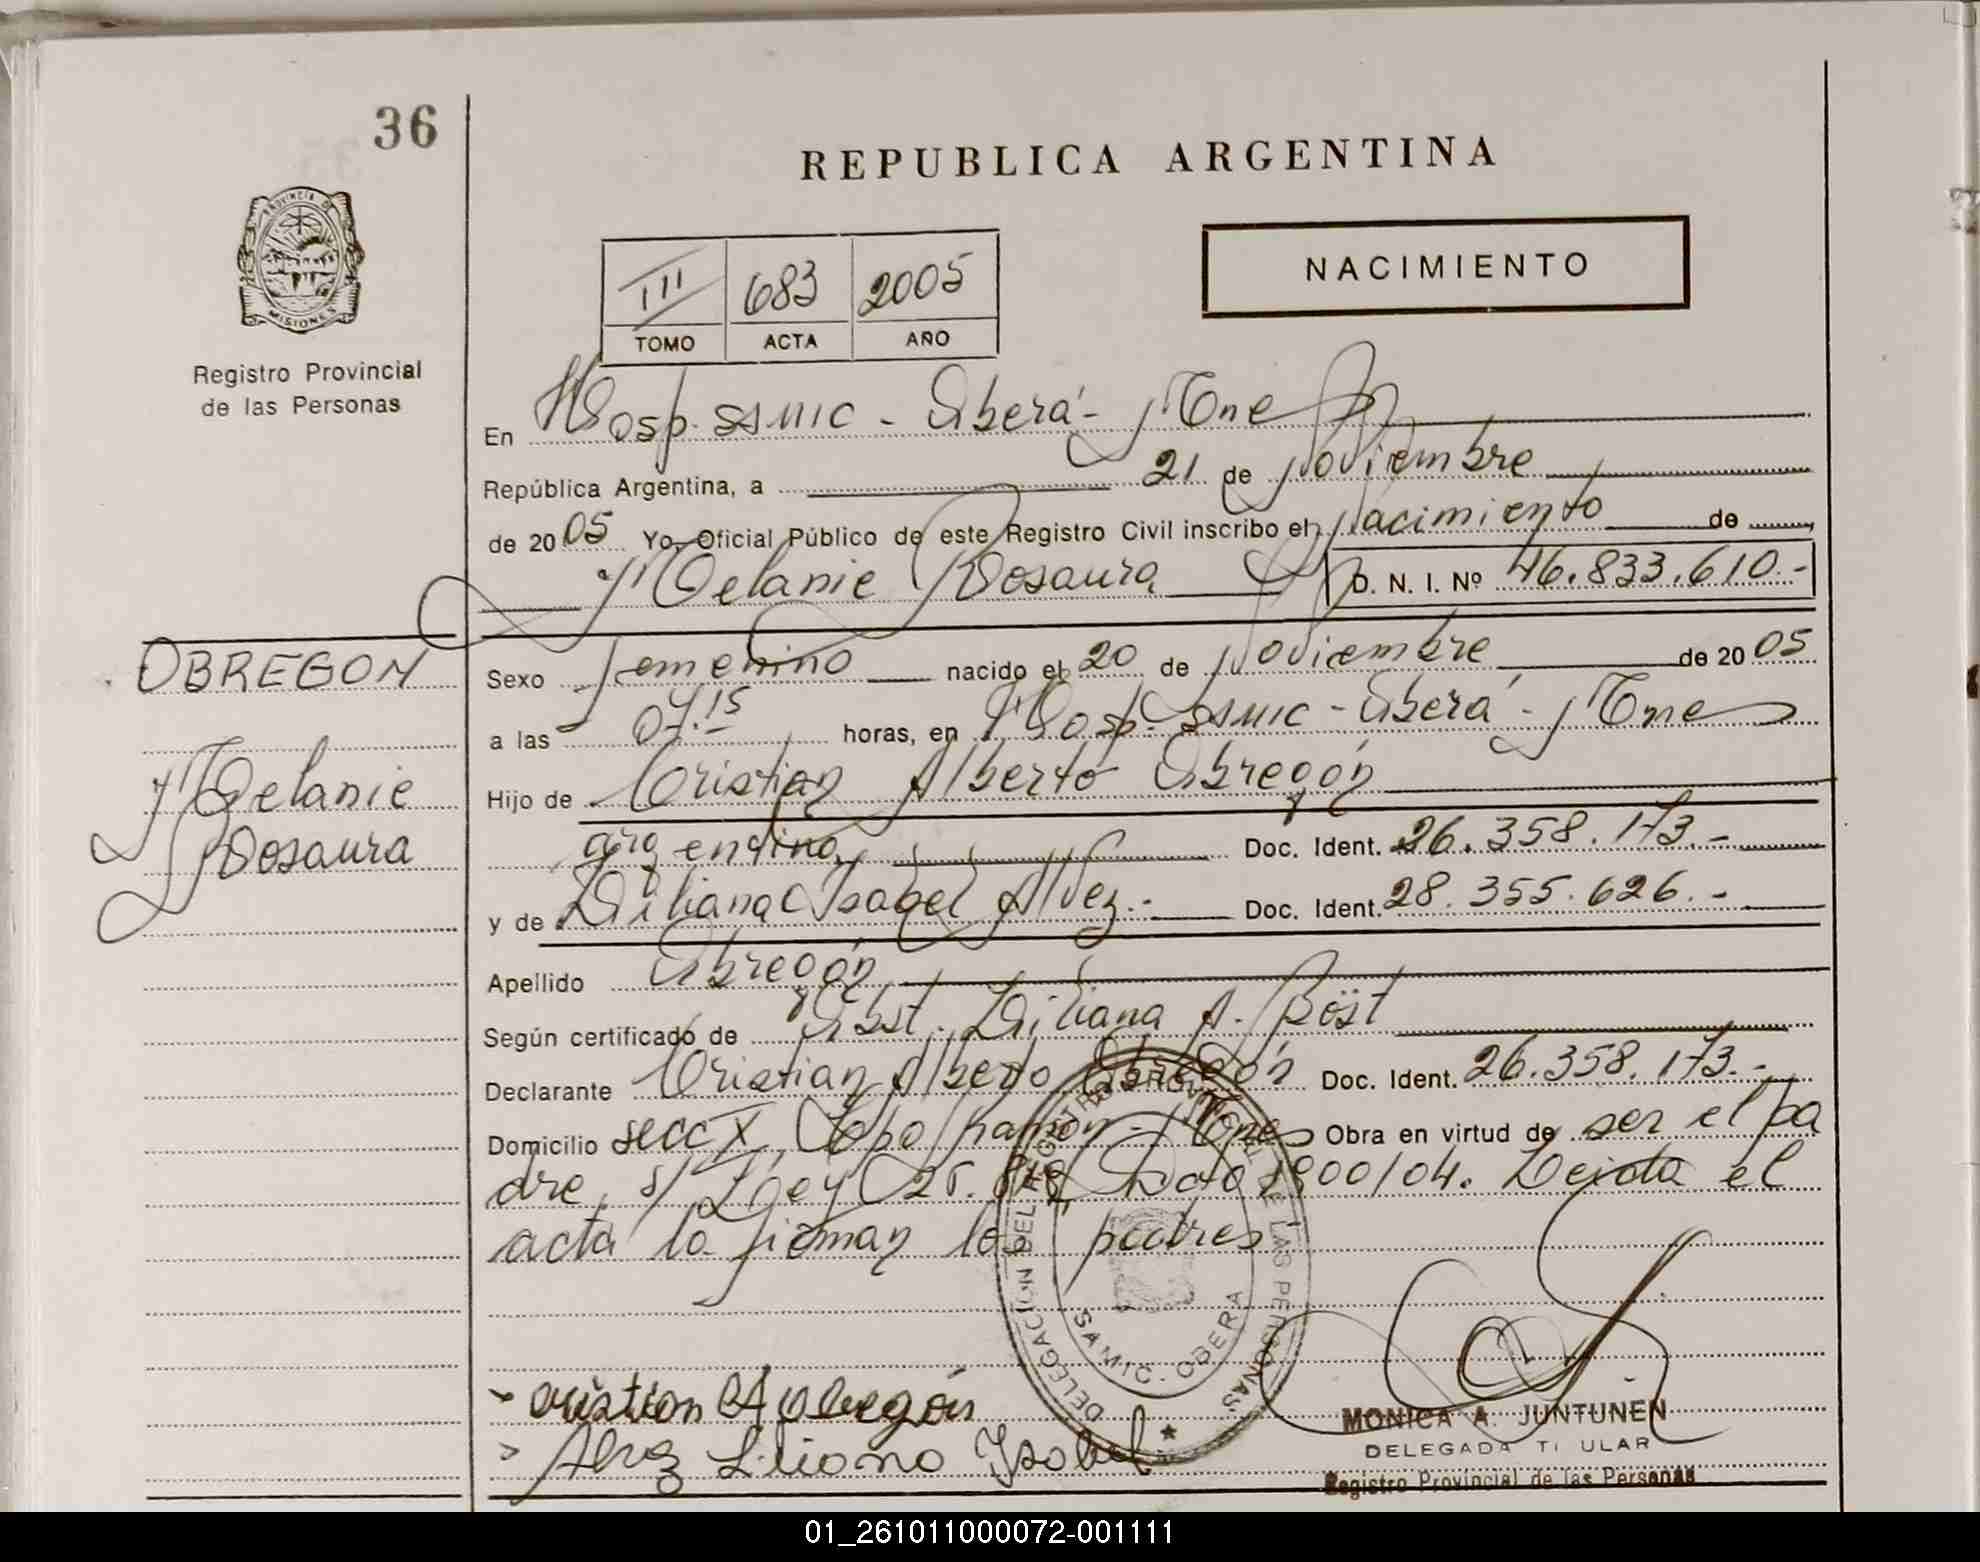 36
REPUBLICA ARGENTINA
PROVINCIA DE
MISIONES
Registro Provincial
de las Personas
III 683 2005
TOMO ACTA AÑO
NACIMIENTO
En Hosp. SAMIC - Oberá - Mnes
República Argentina, a 21 de Noviembre
de 2005 Yo, Oficial Público de este Registro Civil inscribo el Nacimiento de
Melanie Rosaura D. N. I. Nº 46.833.610.-
OBREGON
Melanie
Rosaura
Sexo femenino nacido el 20 de Noviembre de 2005
a las 07.15 horas, en Hosp. SAMIC - Oberá - Mnes
Hijo de Cristian Alberto Obregón
argentino, Doc. Ident. 26.358.173.-
y de Liliana Isabel Alvez.- Doc. Ident. 28.355.626.-
Apellido Obregón
Según certificado de Obst. Liliana A. Röst
Declarante Cristian Alberto Obregón Doc. Ident. 26.358.173.-
Domicilio secc X, Lobo Ramón - Mnes Obra en virtud de ser el pa
dre, s/ Ley 25. Dcto 1900/04. Leida el
acta la firman los padres
DELEGACION DEL REGISTRO PROVINCIAL DE LAS PERSONAS
SAMIC. OBERA
Cristian A Obregón
Alvez Liliana Ysabel
MONICA A. JUNTUNEN
DELEGADA TI ULAR
Registro Provincial de las Personas
01_261011000072-001111